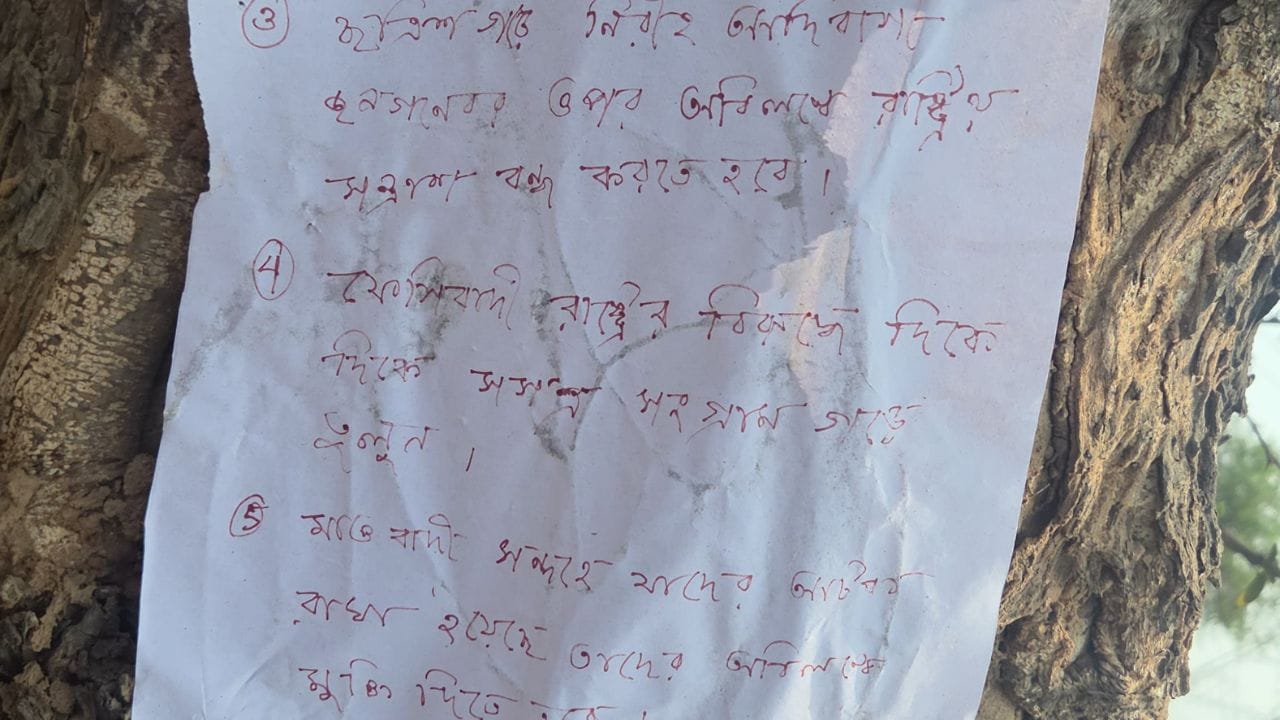 ৩ ছত্রিশগড়ে নিরীহ আদিবাসী
জনগনের ওপর অবিলম্বে রাষ্ট্রিয়
সন্ত্রাস বন্ধ করতে হবে।
4 ফ্যেসিবাদী রাষ্ট্রের বিরুদ্ধে দিকে
দিকে সসস্ত্র সংগ্রাম গড়ে
তুলুন।
5 মাওবাদী সন্দহে যাদের আটক
রাখা হয়েছে তাদের অবিলম্বে
মুক্তি দিতে হবে।